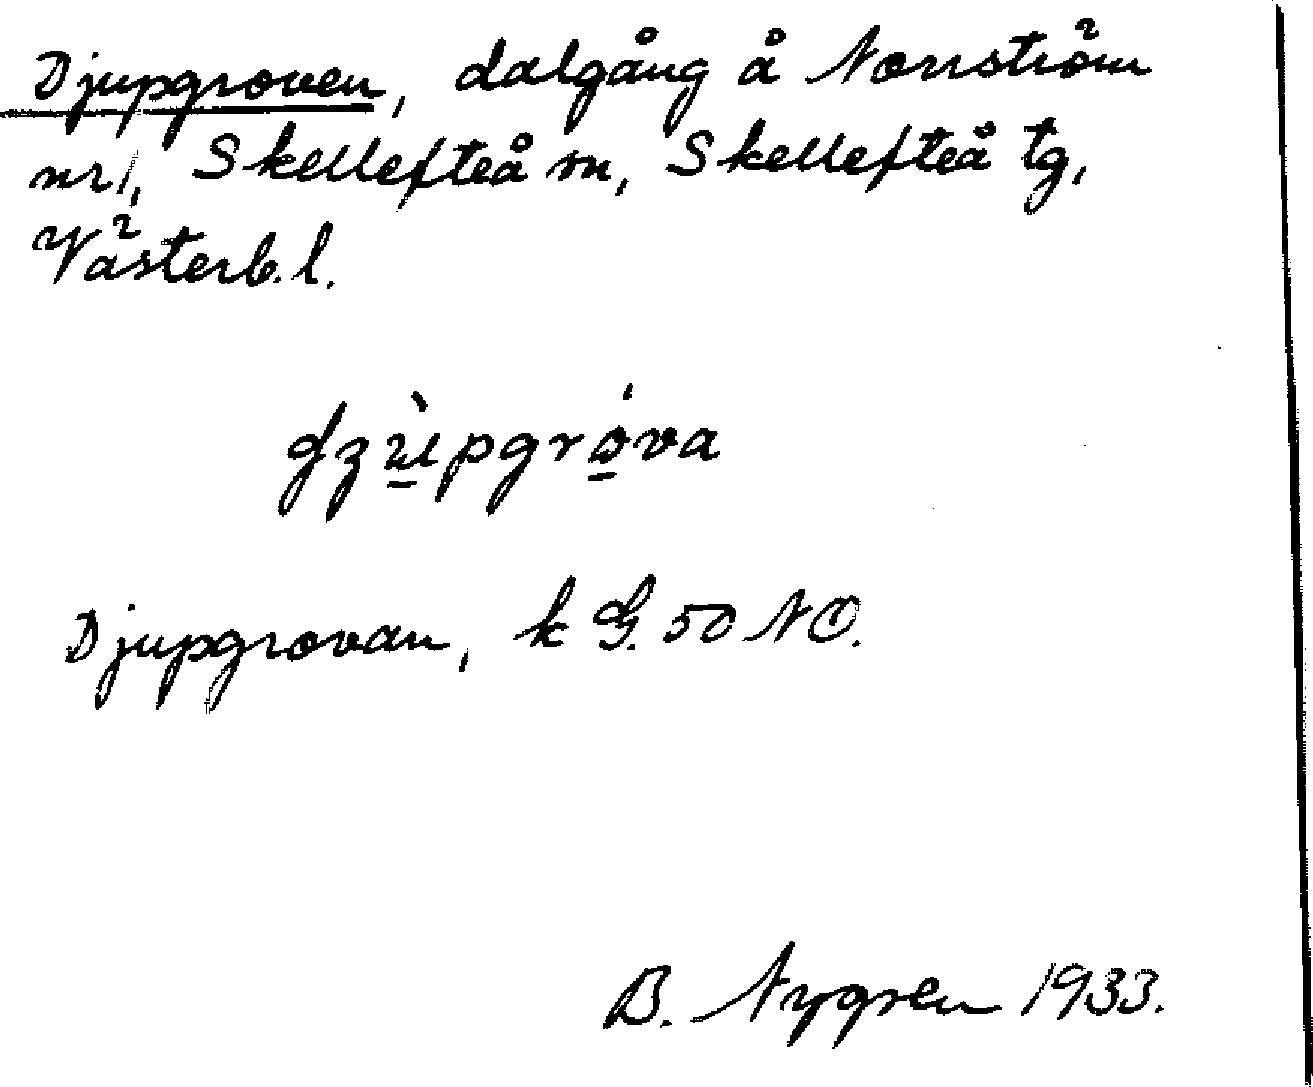 Djupgroven, dalgång å Norrström
nr 1, Skellefteå sn, Skellefteå tg,
Västerb. l.
Djupgrovan, k G. 50 NO.
B. Nygren 1933.